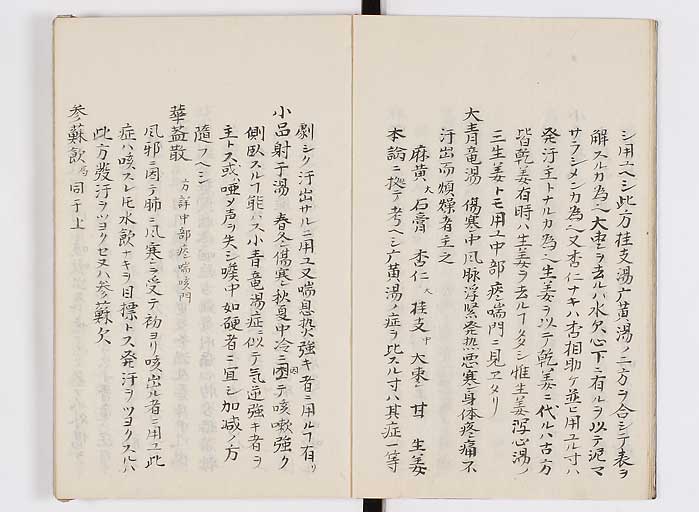 シ用ユヘシ此方桂支湯广黄湯ノ二方ヲ合シテ表ヲ
解スルカ為ヘ大枣ヲ去ルハ水欠心下ニ有ルヲ以テ泥マ
サラシメンカ為ヘ又杏仁ナキハ杏相助ケ並ヒ用ユル寸ハ
発汗主トナルカ為ヘ生姜ヲ以テ乾姜ニ代ルハ古方
皆乾姜有時ハ生姜ヲ去ルヿ多シ惟生姜泻心湯ノ
三生姜トモ用ユ中部痰喘門ニ見ヱタリ
大青竜湯 傷寒中風脉浮緊発热悪寒身体疼痛不
汗出而煩燥者主之
麻黄大 石膏 杏仁大 桂支中 大枣 甘 生姜
本論ニ拠テ考ヘシ广黄湯ノ症ヲ比スル寸ハ其症一等
劇シク汗出サルニ用ユ又喘息热強キ者ニ用ルヿ有リ
小品射干湯 春冬傷寒秋夏中冷ニ因テ咳嗽強ク
因
側臥スルヿ能ハス小青竜湯症ニ似テ气逆強キ者ヲ
主トス或ハ唖メ声ヲ失シ喉中如硬者ニ宜シ加减ノ方
隨フヘシ
華盖散 方詳中部痰喘咳門
風邪ニ因テ肺ニ風寒ヲ受テ初ヨリ咳出ル者ニ用ユ此
症ハ咳スレ𪜈水飲ナキヲ目標トス発汗ヲツヨクスルハ
此方發汗ヲツヨクセヌハ参蘇欠
参蘇飲 同于上